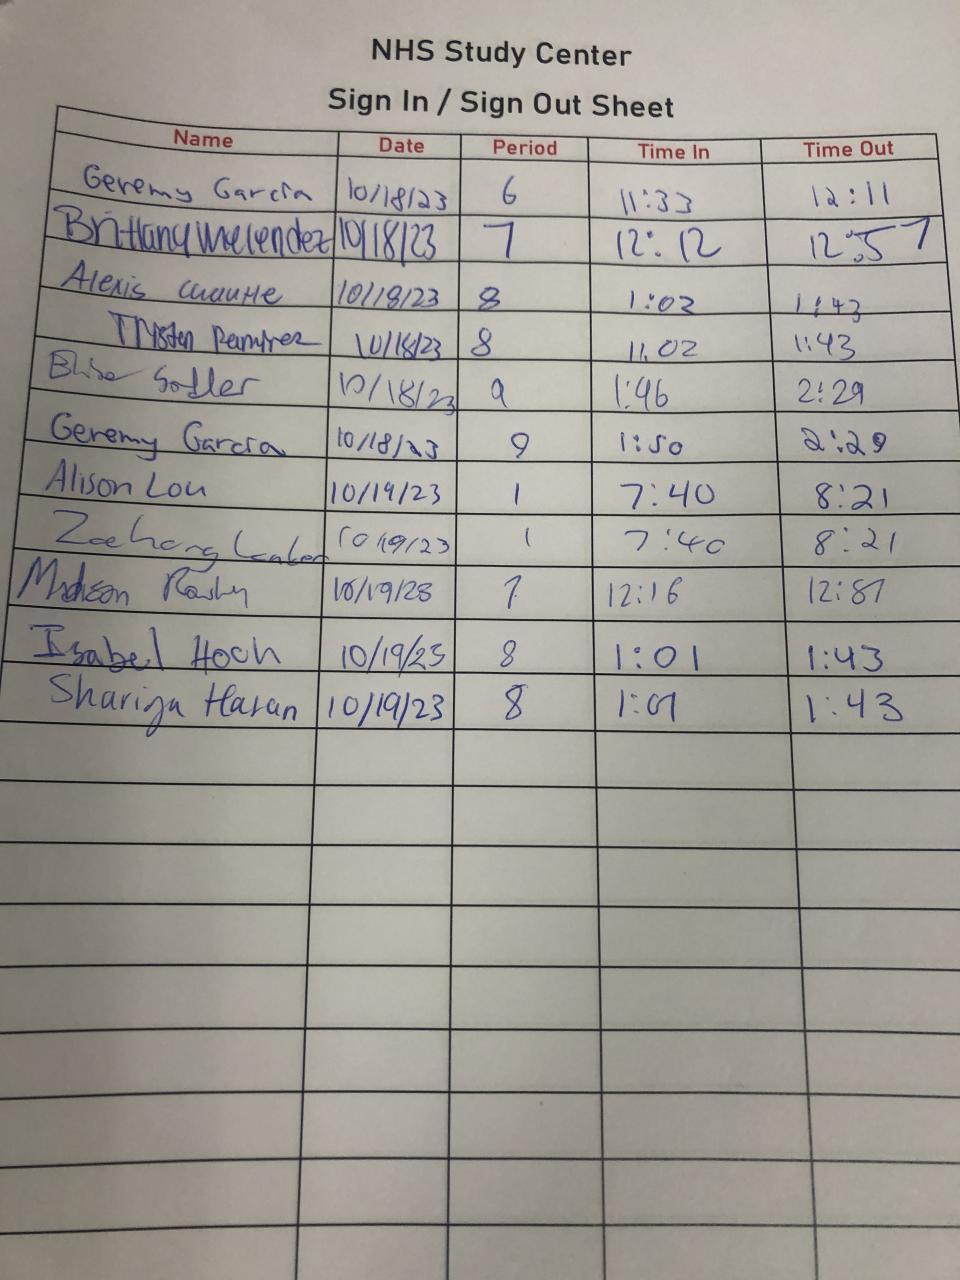 NHS Study Center
Sign In / Sign Out Sheet
Name Date Period Time In Time Out
Geremy Garcia 10/18/23 6 11:33 12:11
Brittany Melendez 10/18/23 7 12:12 12:57
Alexis 10/18/23 8 1:02 1:43
Trysten Ramirez 10/18/23 8 11:02 1:43
10/18/23 9 1:46 2:29
Geremy Garcia 10/18/23 9 1:50 2:29
Alison Lou 10/19/23 1 7:40 8:21
10/19/23 1 7:40 8:21
10/19/23 7 12:16
Isabel Hoch 10/19/23 8 1:01 1:43
Haran 10/19/23 8 1:01 1:43